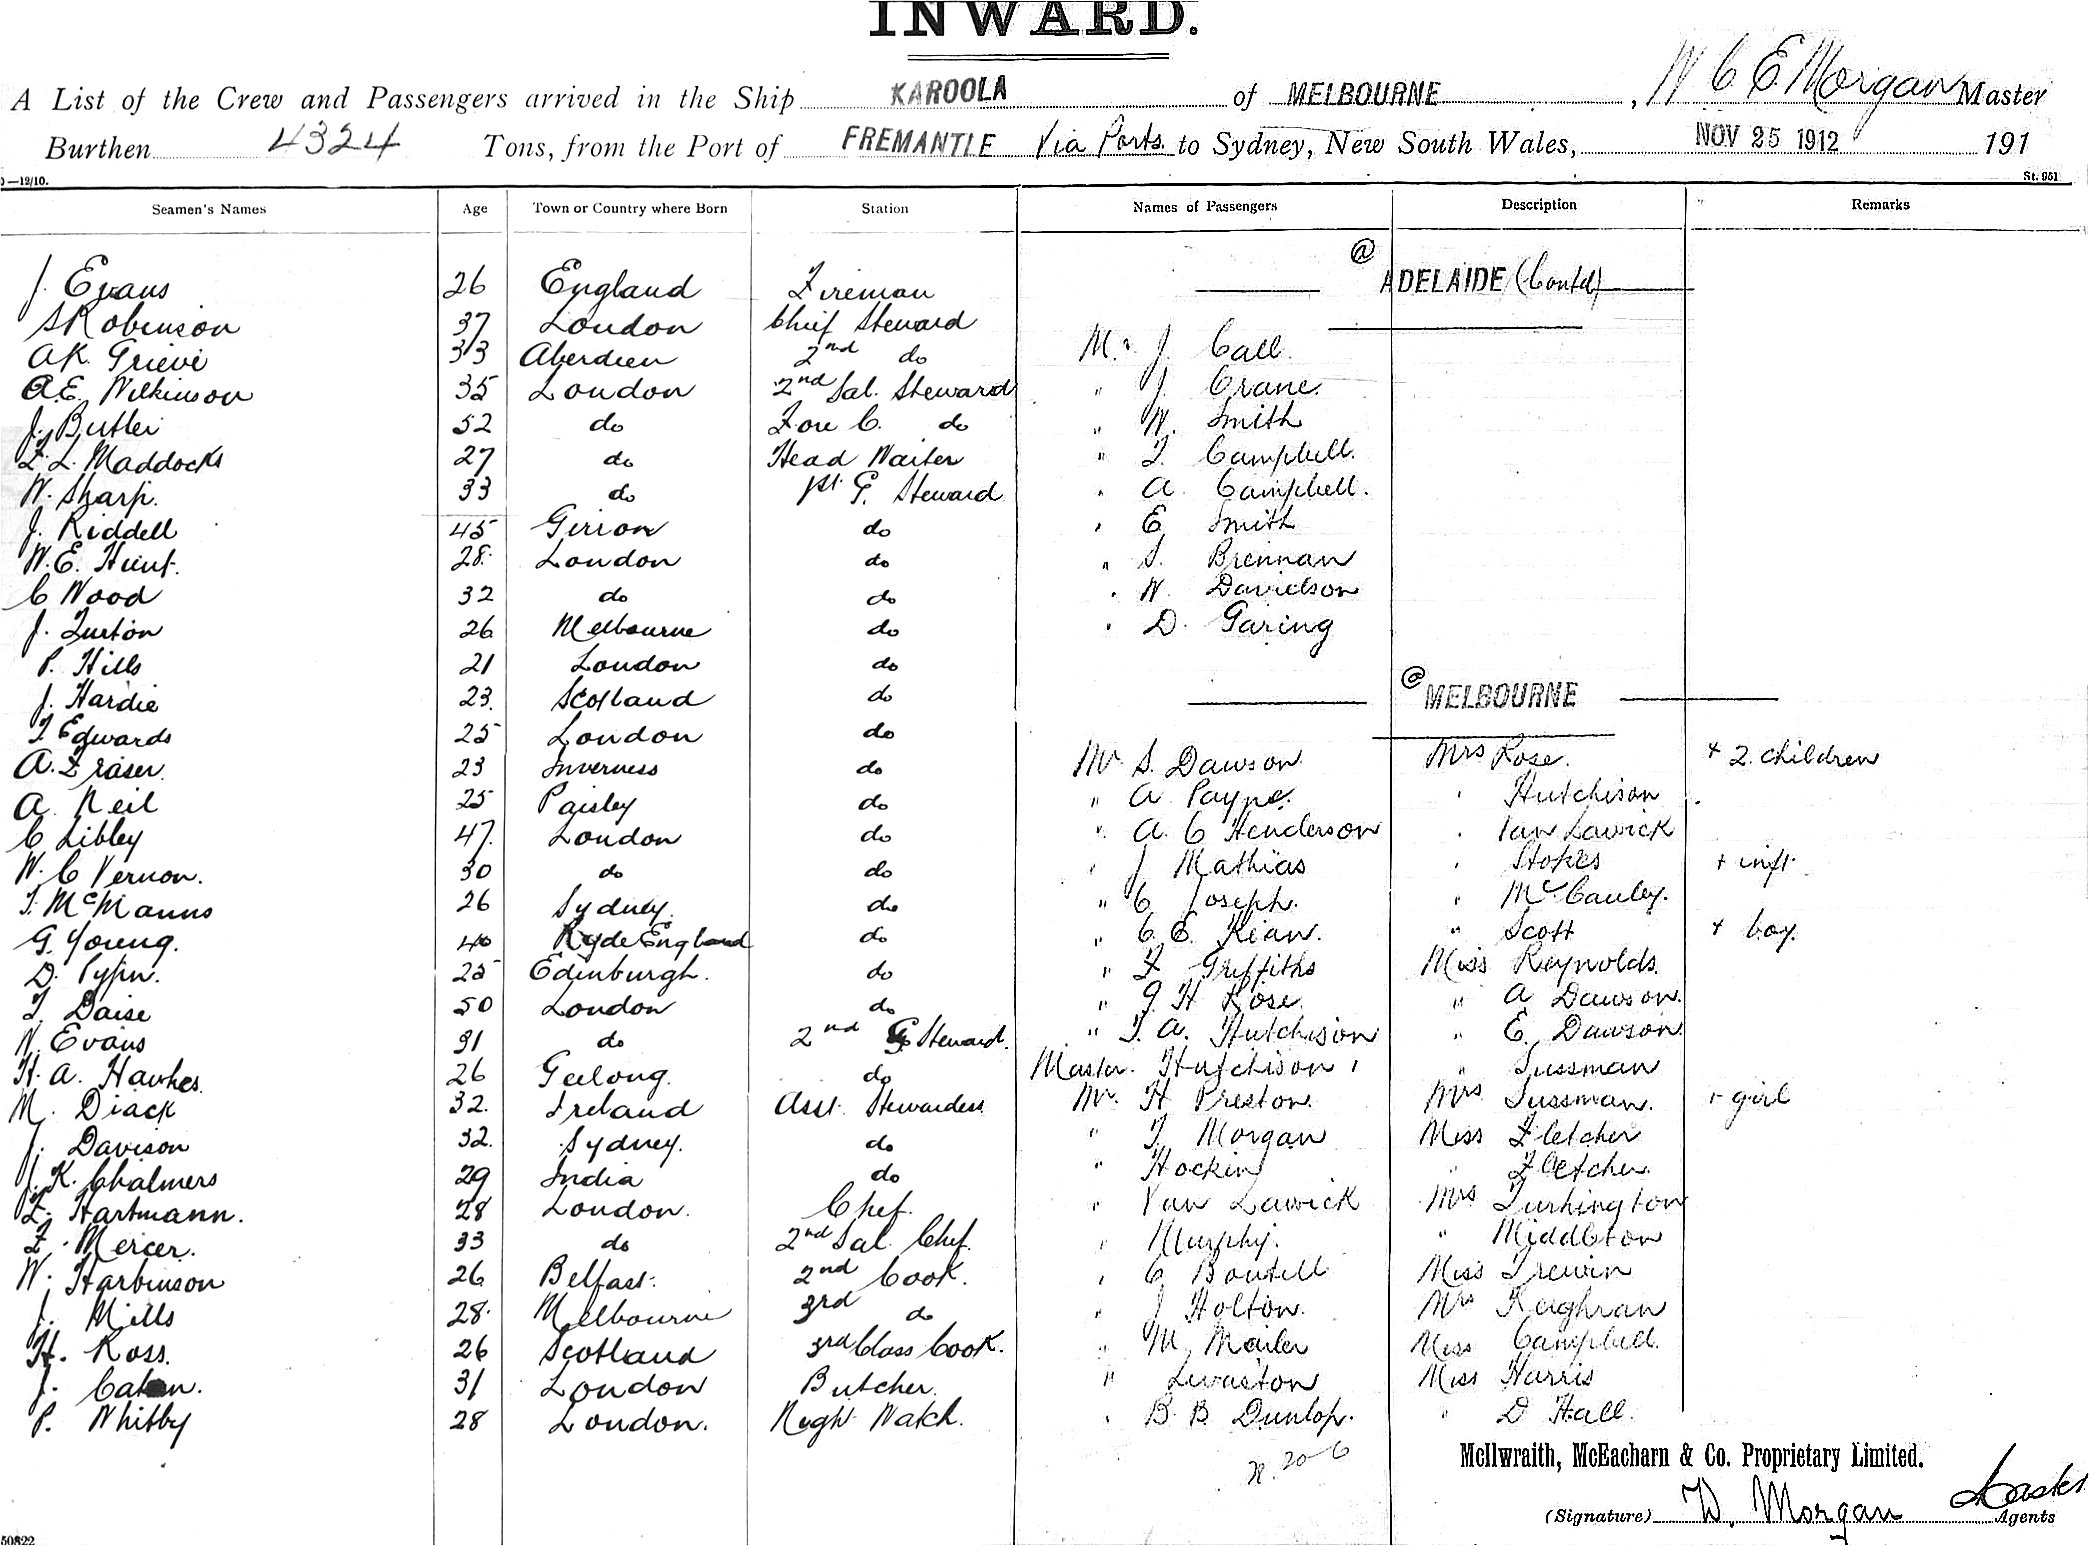 INWARD.
A List of the Crew and Passengers arrived in the Ship KAROOLA of MELBOURNE, W C E Morgan Master
Burthen 4324 Tons, from the Port of FREMANTLE Via Ports to Sydney, New South Wales, NOV 25 1912 191
—12/10. St. 951
Seamen's Names Age Town or Country where Born Station Names of Passengers Description Remarks
@ ADELAIDE (Contd)
J. Evans 26 England Fireman
S Robinson 37 London Chief Steward
A K. Grieve 33 Aberdeen 2nd do Mr. J. Call.
A.E. Wilkinson 35 London 2nd Sal. Steward " J. Crane.
J. Butler 52 do Fore C. do " W. Smith
L. Maddocks 27 do Head Waiter " T. Campbell.
W. Sharp. 33 do 1st G. Steward " A. Campbell.
J. Riddell 45 Girvon do " E Smith
W. E. Hunt. 28. London do " S. Brennan
C Wood 32 do do " W. Davidson
J. Turton 26 Melbourne do " D. Garing
P. Hills 21 London do
J. Hardie 23. Scotland do @ MELBOURNE
T Edwards 25 London do
A. Fraser. 23 Inverness do Mr. S. Dawson Mrs Rose. + 2 children
A. Neil 25 Paisley do " A Payne. " Hutchison
C Sibley 47. London do " A. C Henderson " Van Lawick
W. C Vernon. 30 do do " J Mathias " Stokes + inft.
T. McManns 26 Sydney. do " C Joseph. " McCauley.
G. Young. 40 Ryde England do " C. E. Kean. " Scott + boy.
D. 25 Edinburgh. do " F Griffiths Miss Reynolds.
T. Daise 50 London do " G. H Rose. " A Dawson.
W. Evans 31 do 2nd G Steward. " T. A. Hutchison " E. Dawson
H. A. Hawkes. 26 Geelong. do Master. Hutchison " Sussman
M. Diack 32. Ireland Asst. Stewardess Mr. H Preston. Mrs Sussman. + girl
J. Davison 32. Sydney. do " T. Morgan Miss Fletcher
J. K. Chalmers 29 India do " Hockin " Fletcher.
Hartmann. 28 London. Chef. " Van Lawick Mrs Turkington
F. Mercer. 33 do 2nd Sal. Chef. " Murphy. " Middleton
W. Harbinson 26 Belfast. 2nd Cook. " C Boutell Miss Trewin
J. Mills 28. Melbourne 3rd do " J Holton. Mrs Keighran
H. Ross. 26 Scotland 3rd Class Cook. " M. Mailer Miss Campbell.
J. 31 London Butcher. " Miss Harris
P. Whitby 28 London. Night Watch. " B. B Dunlop. " D Hall.
McIlwraith, McEacharn & Co. Proprietary Limited.
(Signature) W. Morgan Agents
50822